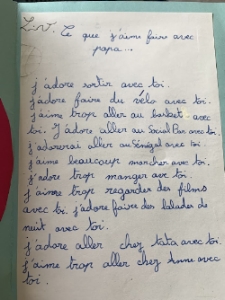 L.V. Ce que j'aime faire avec
papa...
j'adore sortir avec toi.
j'adore faire du vélo avec toi.
j'aime trop aller au basket avec
toi. J'adore aller au Social Bar avec toi.
j'adorerai aller au Sénégal avec toi.
j'aime beaucoup marcher avec toi.
j'adore trop manger avec toi.
j'aime trop regarder des films
avec toi. j'adore faire des balades de
nuit avec toi.
j'adore aller chez tata avec toi.
j'aime trop aller chez Anne avec
toi.